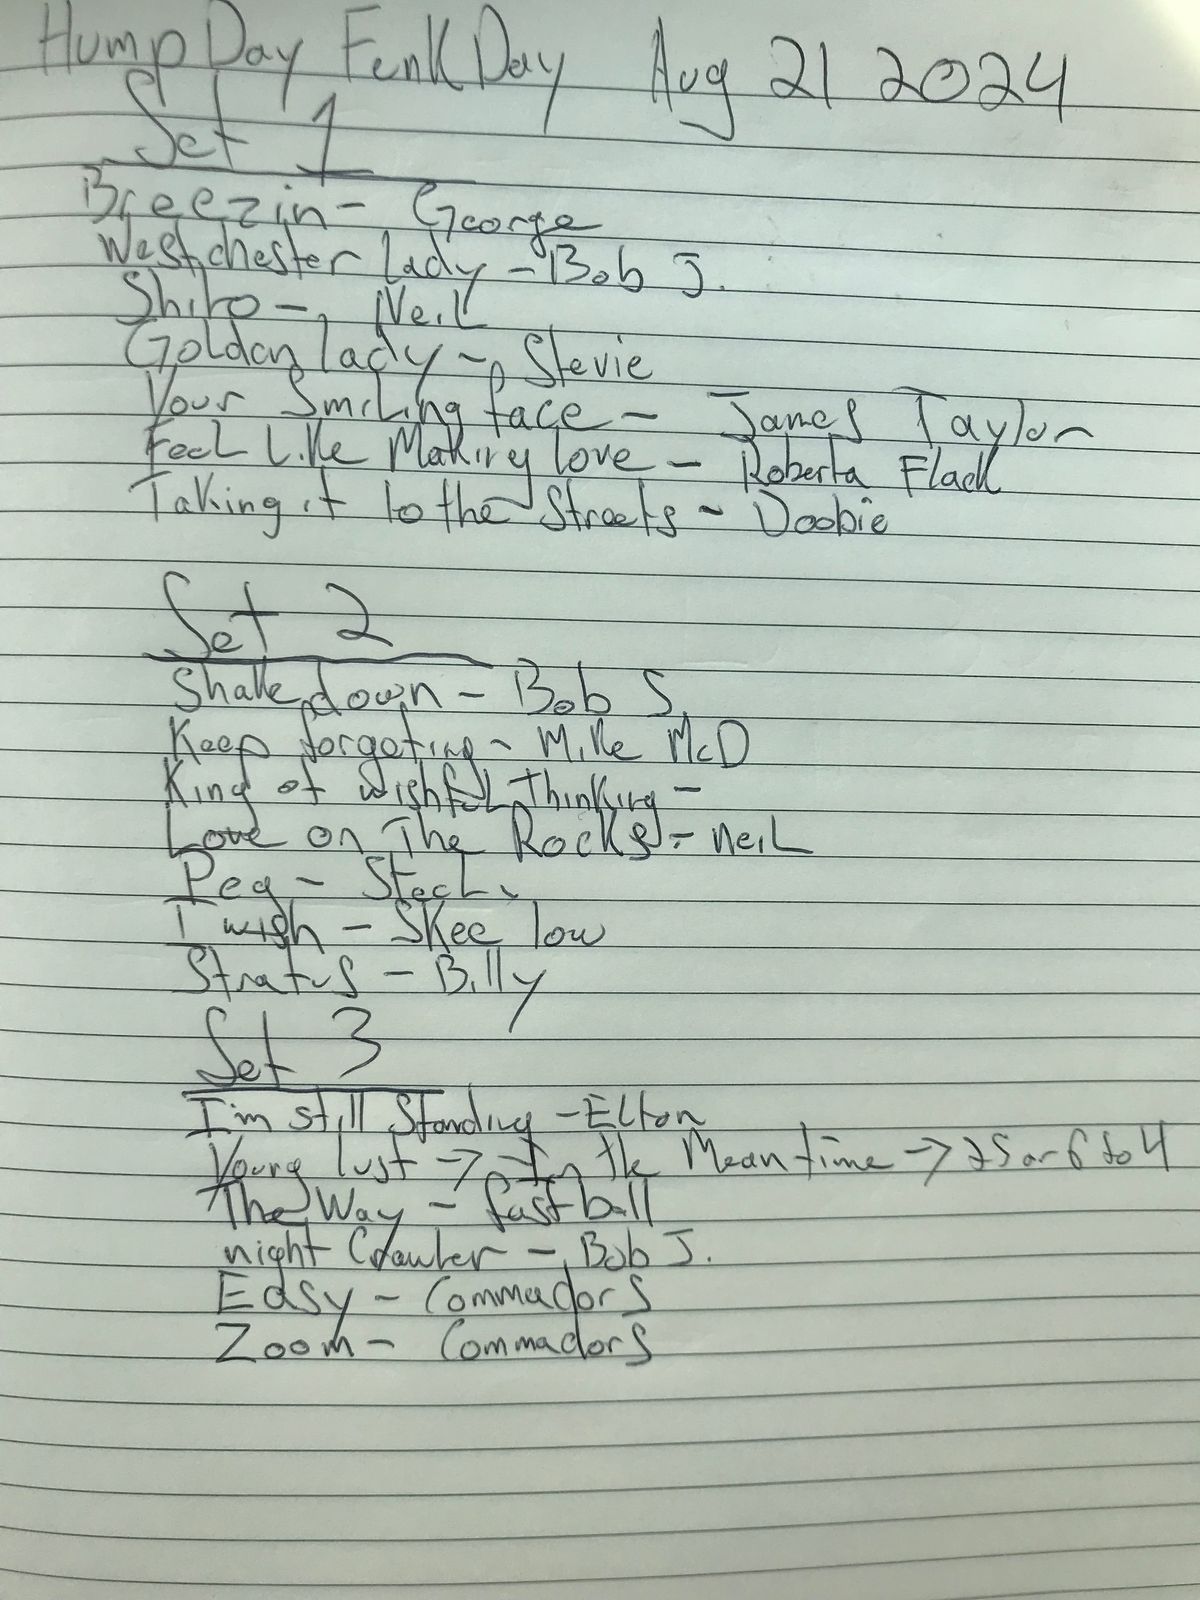 Hump Day Funk Day Aug 21 2024
Set 1
Breezin - George
Westchester lady - Bob J.
Shilo - Neil
Golden lady - Stevie
Your Smiling face - James Taylor
Feel Like Making love - Roberta Flack
Taking it to the Streets - Doobie
Set 2
Shakedown - Bob S.
Keep forgeting - Mike McD
King of wishful Thinking -
Love on The Rocks - Neil
Peg - Steely
I wish - Skee low
Stratus - Billy
Set 3
I'm still Standing - Elton
Young lust -> In the Meantime -> 25 or 6 to 4
The Way - fastball
night Crawler - Bob J.
Easy - Commadors
Zoom - Commadors